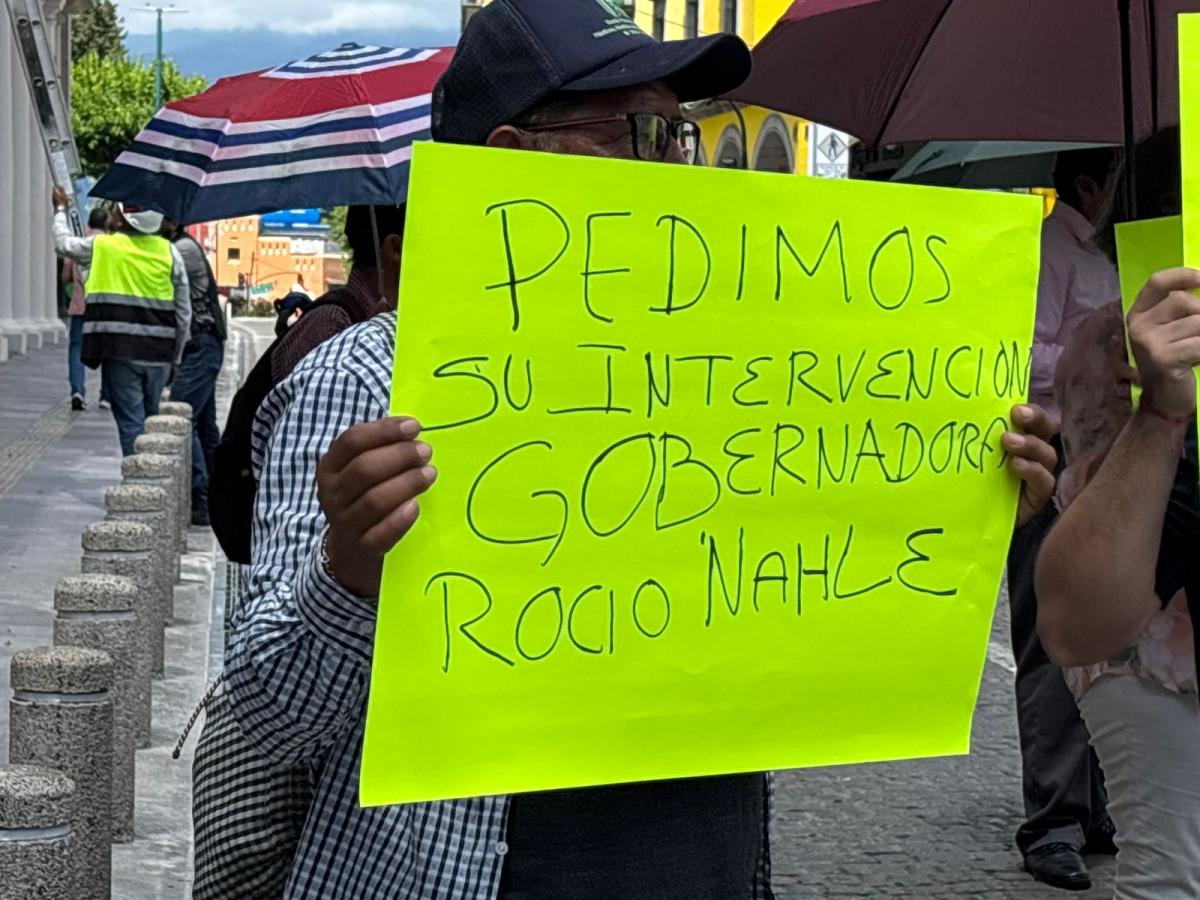 PEDIMOS
SU INTERVENCION
GOBERNADORA
ROCIO NAHLE